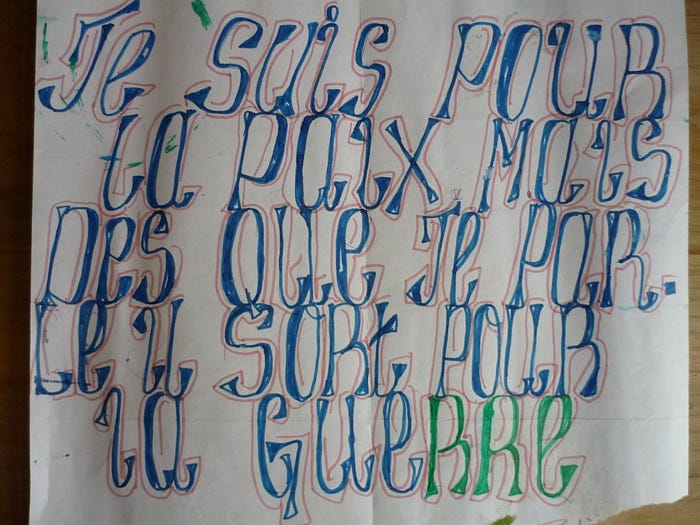 Je suis pour
la paix mais
des que je par.
le il sort pour
la gueRRe